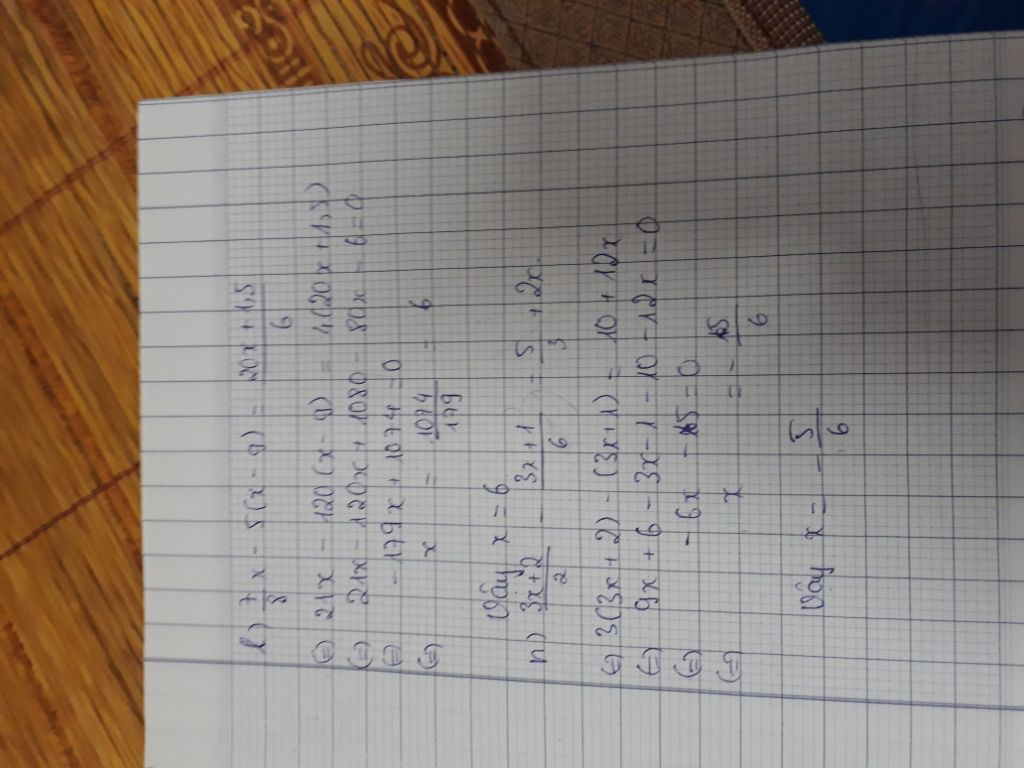 l) 7/8 x - 5(x - 9) = 20x + 1,5 / 6
(=) 21x - 120(x - 9) = 4(20x + 1,5)
(=) 21x - 120x + 1080 - 80x - 6 = 0
(=) - 179x + 1074 = 0
(=) x = 1074/179 = 6
Vậy x = 6
n) 3x + 2 / 2 - 3x + 1 / 6 = 5/3 + 2x
(=) 3(3x + 2) - (3x + 1) = 10 + 12x
(=) 9x + 6 - 3x - 1 - 10 - 12x = 0
(=) - 6x - 5 = 0
(=) x = - 5/6
Vậy x = - 5/6